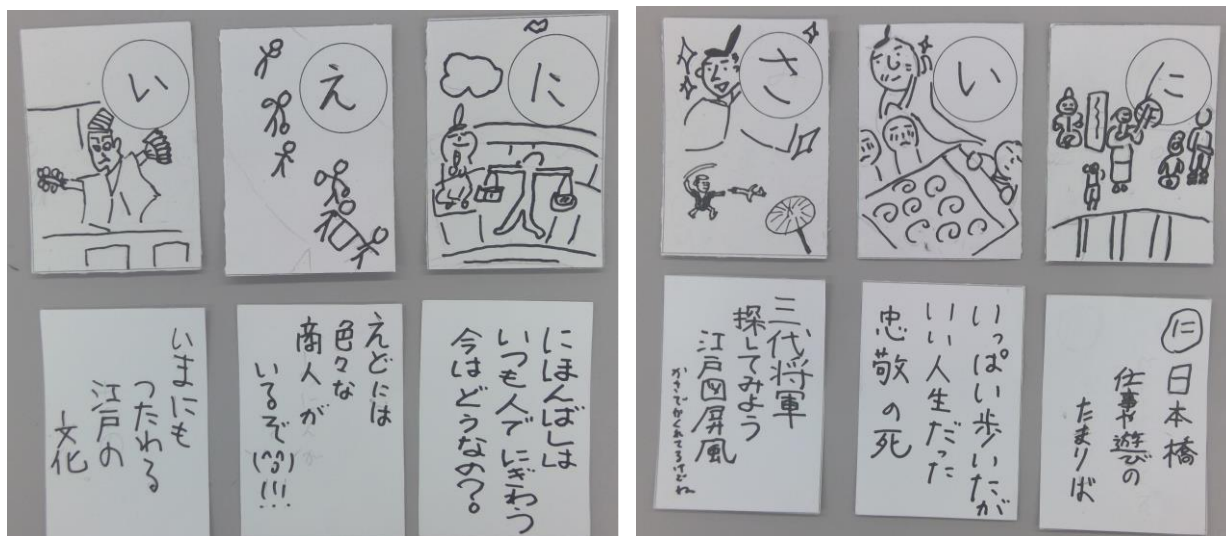 い
え
に
いまにも
つたわる
江戸の
文化
えどには
色々な
商人が
いるぞ(^^)!!!
にほんばしは
いつも人でにぎわう
今はどうなの?
さ
い
に
三代将軍
探してみよう
江戸図屏風
かさでかくれてるけどね
いっぱい歩いたが
いい人生だった
忠敬の死
に 日本橋
仕事や遊びの
たまりば